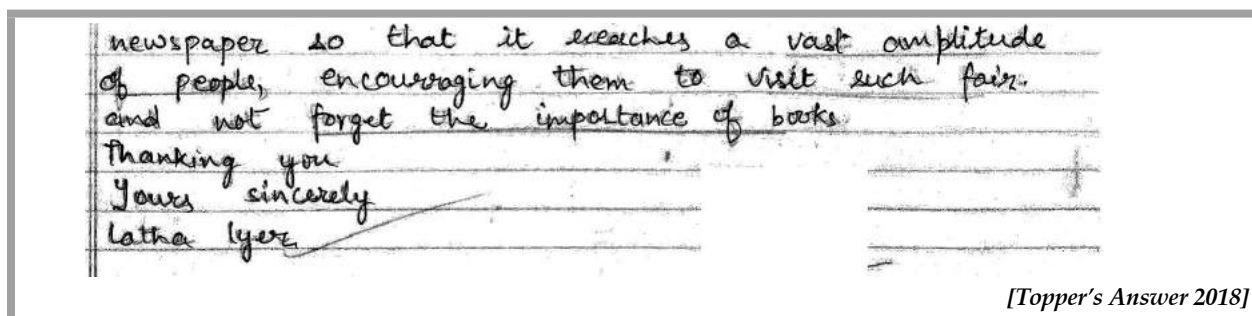 newspaper so that it reaches a vast amplitude
of people, encouraging them to visit such fair.
and not forget the importance of books.
Thanking you
Yours sincerely
Latha Iyer
[Topper's Answer 2018]